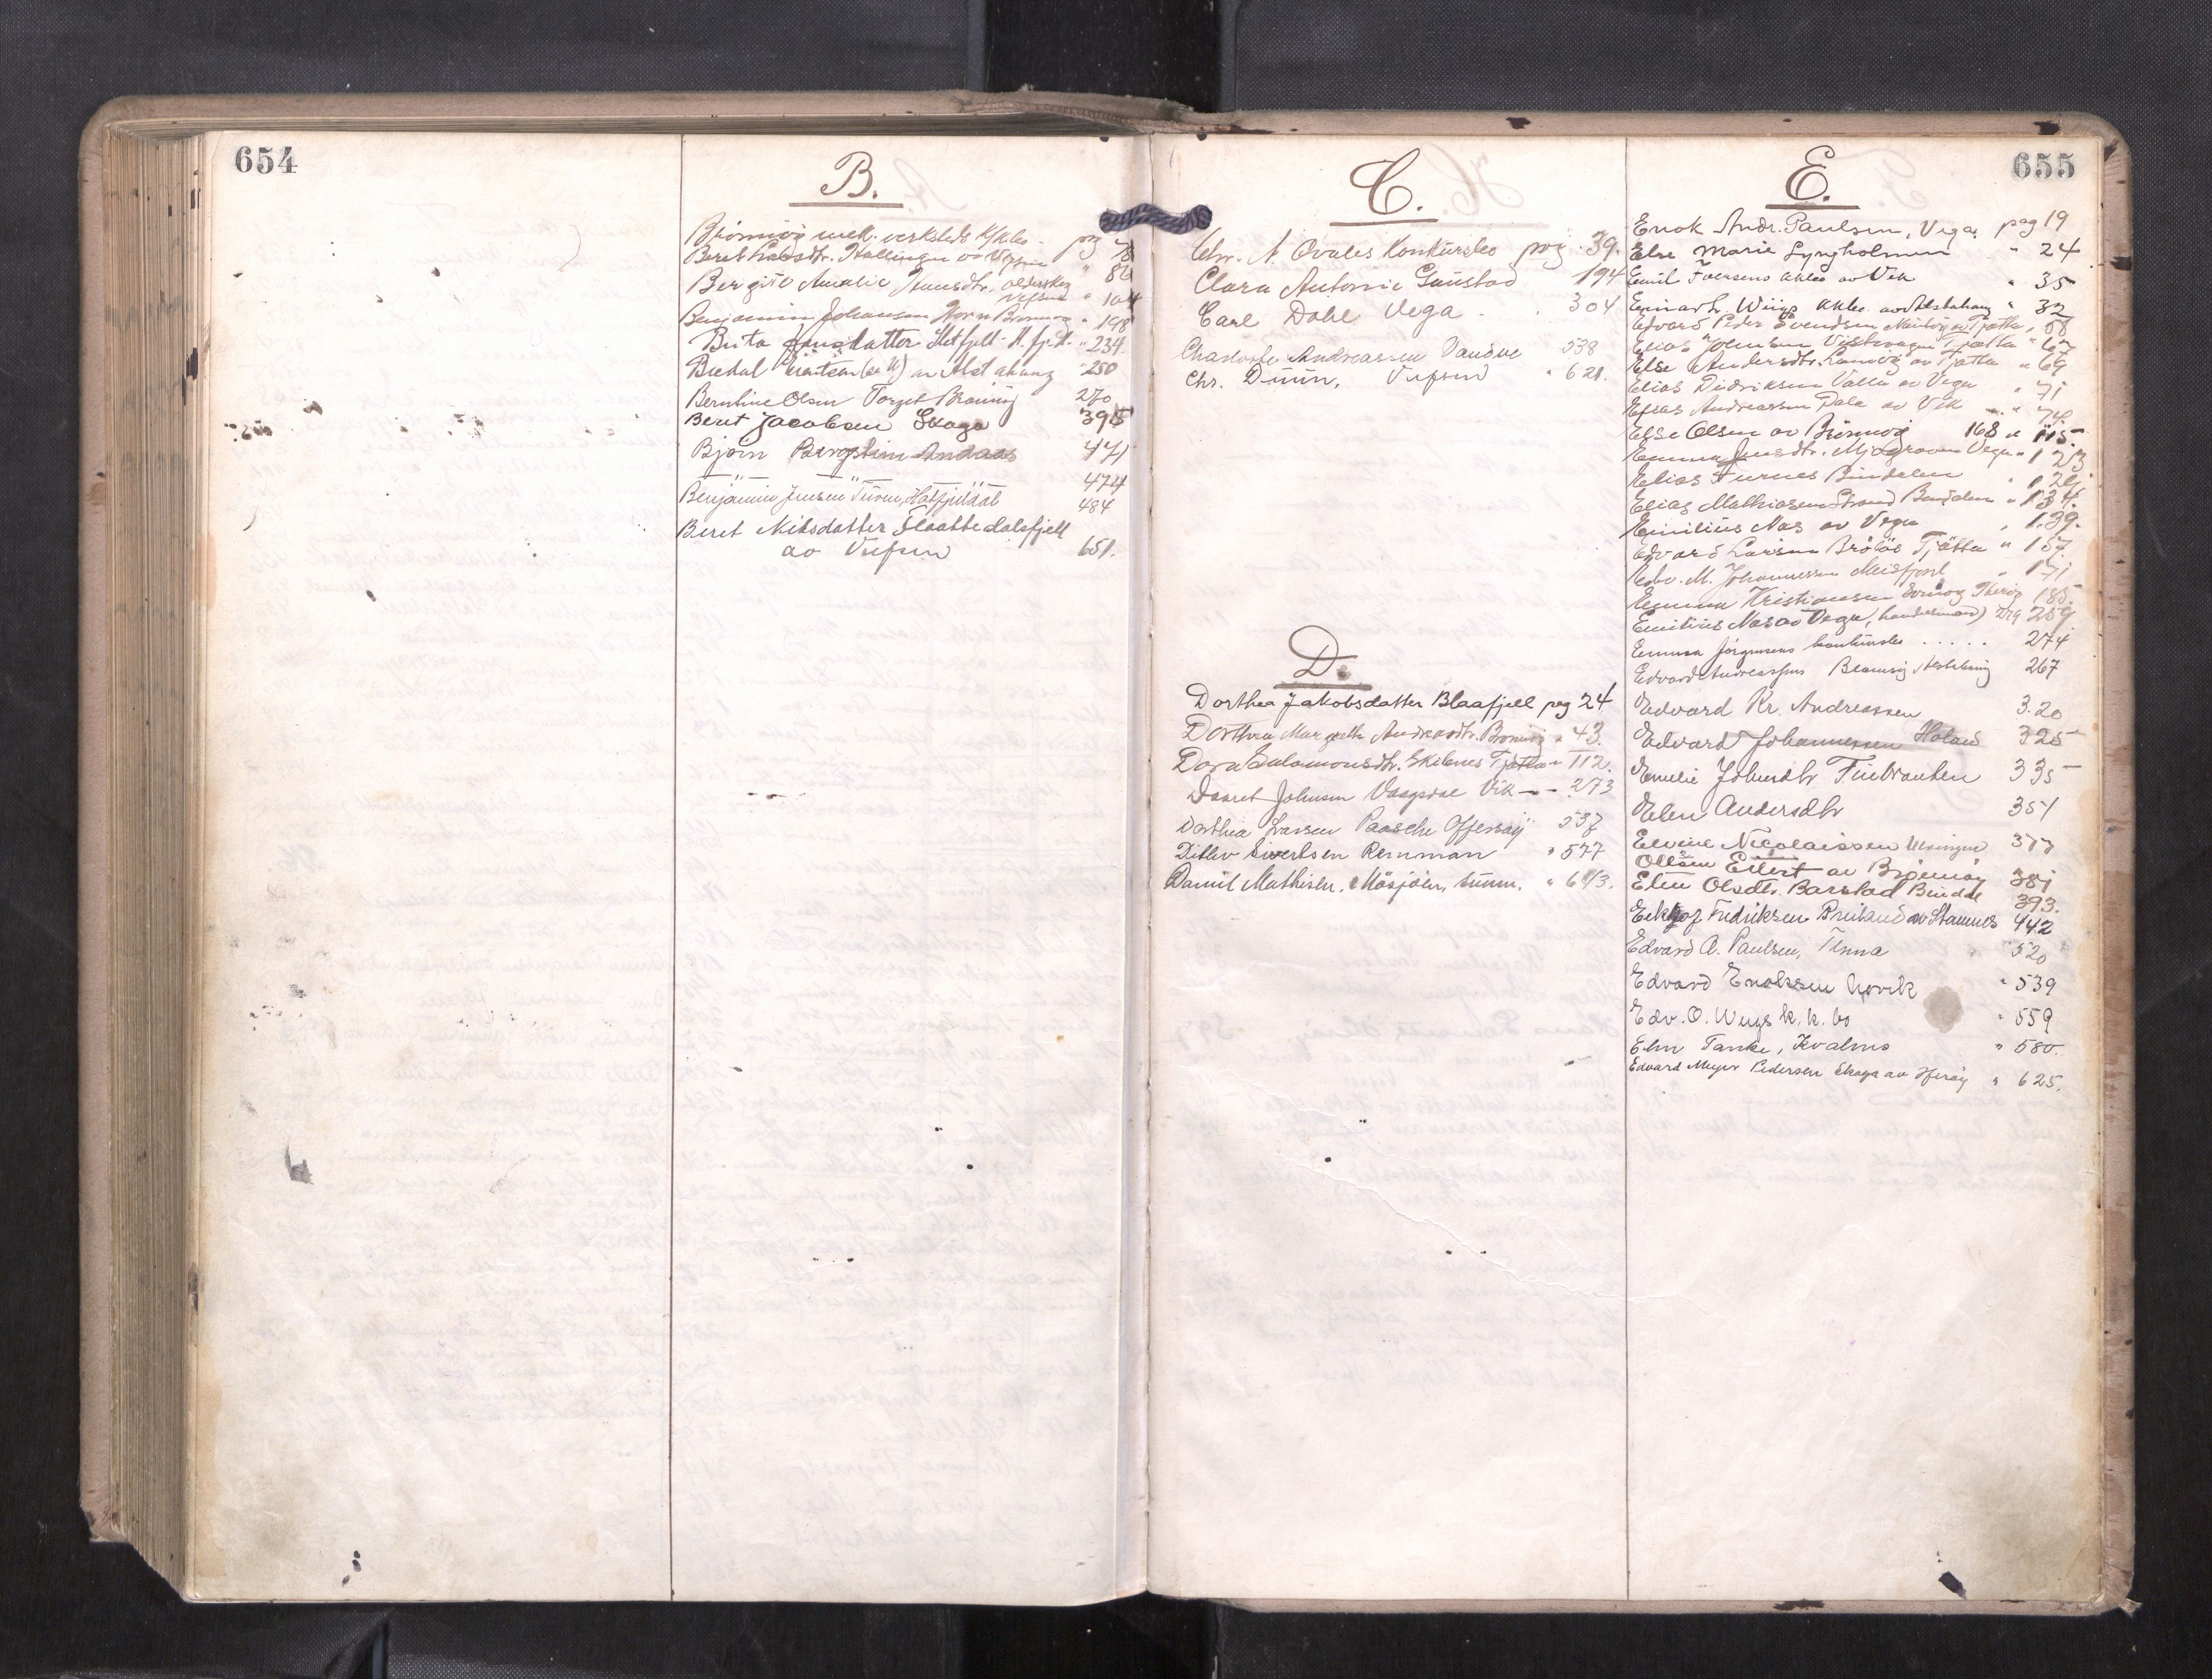 654
B.
Brönnöy mek. verksteds k/kbo - pag 78
Beret Larsdtr. Hallingen av Vefsen " 86
Bergitte Amalie Hansdtr. Olderskog
Vefsen " 104
Benjamin Johansen Horn Brönnöy " 198
Brita Jensdatter Hetfjell - H. fj. d. " 234.
av Alstahaug 250
Berntine Olsen Torget Brönnöy 270
Beret Jacobsen Skaga 395
Bjørn Bergstein Andaas 471
— " — " — " — 474
Benjamin Jensen Tüven, Hatfjeldal 484
Beret Nilsdatter Flaattedalsfjell
av Vefsen 651.
C.
Chr. A. Qvales Konkursbo pag. 39.
Clara Antonie Gaustad 194
Carl Dahl Vega . . 304
Charlotte Andreassen Vandve 538
Chr. Düün, Vefsen " 621.
D.
Dorthea Jakobsdatter Blaafjell pag 24
Dorthea Margrethe Andreasdtr. Brönnöy " 43.
Dora Salamonsdtr. Skilsnes Tjøtta " 112.
Daaret Johnsen Vaagsdal Vik — - 273
Dorthea Larsen Paasche Offersöy 537
Ditlev Sivertsen Remman " 577
Daniel Mathisen, Mosjöen, Summ. " 643.
655
E.
Enok Andr. Paulsen, Vega, pag 19
Else Marie Lyngholmen " 24
Emil Iversens akbo av Vik " 35
Einar L. Wiigs akbo av Alstahaug " 32
Edvard Peder Svendsen Tjøtta " 58
Elias Johnsen Tjøtta " 67
Else Andersdtr. Landøy av Tjøtta " 69
Elias Didriksen Valla av Vega " 71
Elias Andreassen Dale av Vik " 74.
Else Olsen av Brönnöy 168 " 115.
Emma Jensdtr. Vega " 123
Elias Furnes Bindalen " 129
Elias Mathiasen Strand Bindalen " 134.
Emilius Nas av Vega " 139.
Edvard Larsen Brölös Tjøtta " 157.
Edv. M. Johannessen Meisfjord " 171
Emma Kristiansen Herøy 185.
Emilius Nas av Vega, (handelsmand) pag 259
Emma Jörgensens konkursbo . . . . . 274
Edvard Andreassens Alstahaug 267
Edvard Kr. Andreassen 320
Edvard Johannessen Holand 325
Emelie Johnsdtr Finbrauten 335
Elen Andersdtr 354
Elvine Nicolaissen 377
Ottsen Eilert av Brönnöy 381
Elen Olsdtr. Barstad Bindal 393.
Fredriksen av Stamnes 442
Edvard A. Paulsen, Tenna " 520
Edvard Enoksen Norvik " 539
Edv. O. Wiigs k.k.bo " 559
Elen Tanke, Kvalnes " 580.
Edvard Meyer Pedersen Skaga av Herøy " 625.